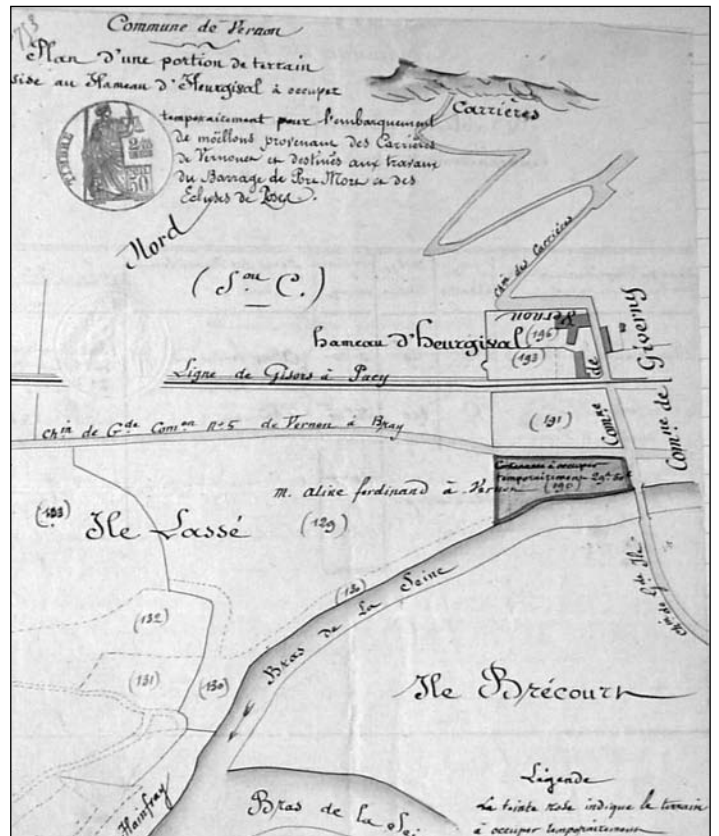 Commune de Vernon
Plan d'une portion de terrain
sise au Hameau d'Heurgival à occuper
temporairement pour l'embarquement
de moëllons provenant des Carrières
de Vernonet et destinés aux travaux
du Barrage de Port Mort et des
Ecluses de
TIMBRE
50
Carrières
Nord
(Son C.)
chin des Carrières
Vernon
hameau d'heurgival
(196)
(193)
Comne de
Comne de Giverny
Ligne de Gisors à Pacy
(191)
chin de Gde Comon no 5 de Vernon à Bray
Contenance à occuper
temporairement
(190)
m. alixe ferdinand à Vernon
(133)
Ile Lassé
(129)
chin de Gde Ile
(130)
Bras de La Seine
(132)
(131)
(130)
Ile Brécourt
Hainfray
Bras de la Sei
Légende
La teinte rose indique le terrain
à occuper temporairement